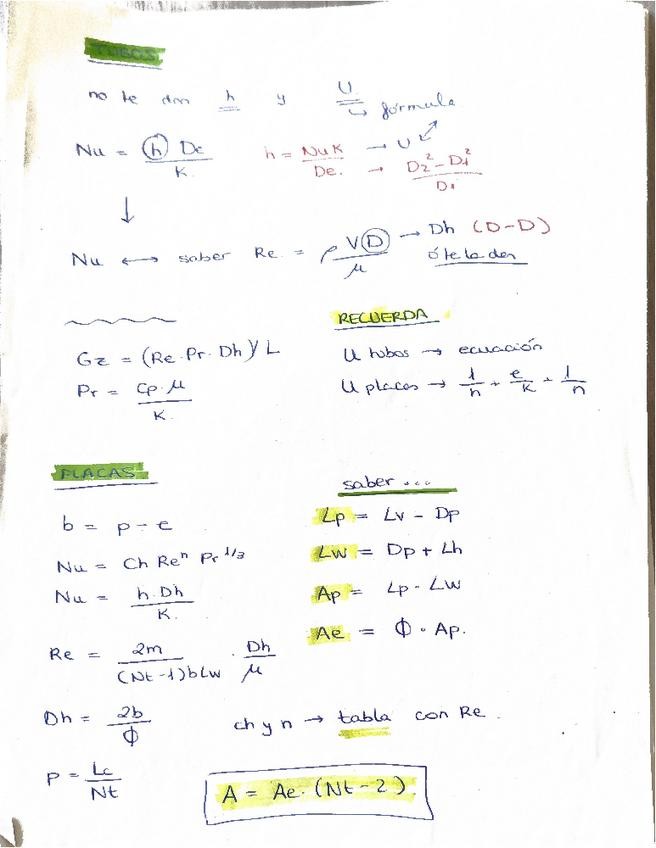 TUBOS
no te dan h y U → fórmula
Nu = h De / K.
h = Nu K / De. → U → D2² - D1² / D1
Nu ↔ saber Re = ρ V D / μ → Dh (D-D)
ó te la dan
RECUERDA
Gz = (Re · Pr · Dh) / L
Pr = Cp · μ / K.
U tubos → ecuación
U placas → 1/h + e/k + 1/h
PLACAS
b = p - e
Nu = Ch Re^n Pr^1/3
Nu = h · Dh / K.
Re = 2m / (Nt - 1) b Lw · Dh / μ
Dh = 2b / Φ
P = Lc / Nt
saber ...
Lp = Lv - Dp
Lw = Dp + Lh
Ap = Lp · Lw
Ae = Φ · Ap.
ch y n → tabla con Re.
A = Ae · (Nt - 2).